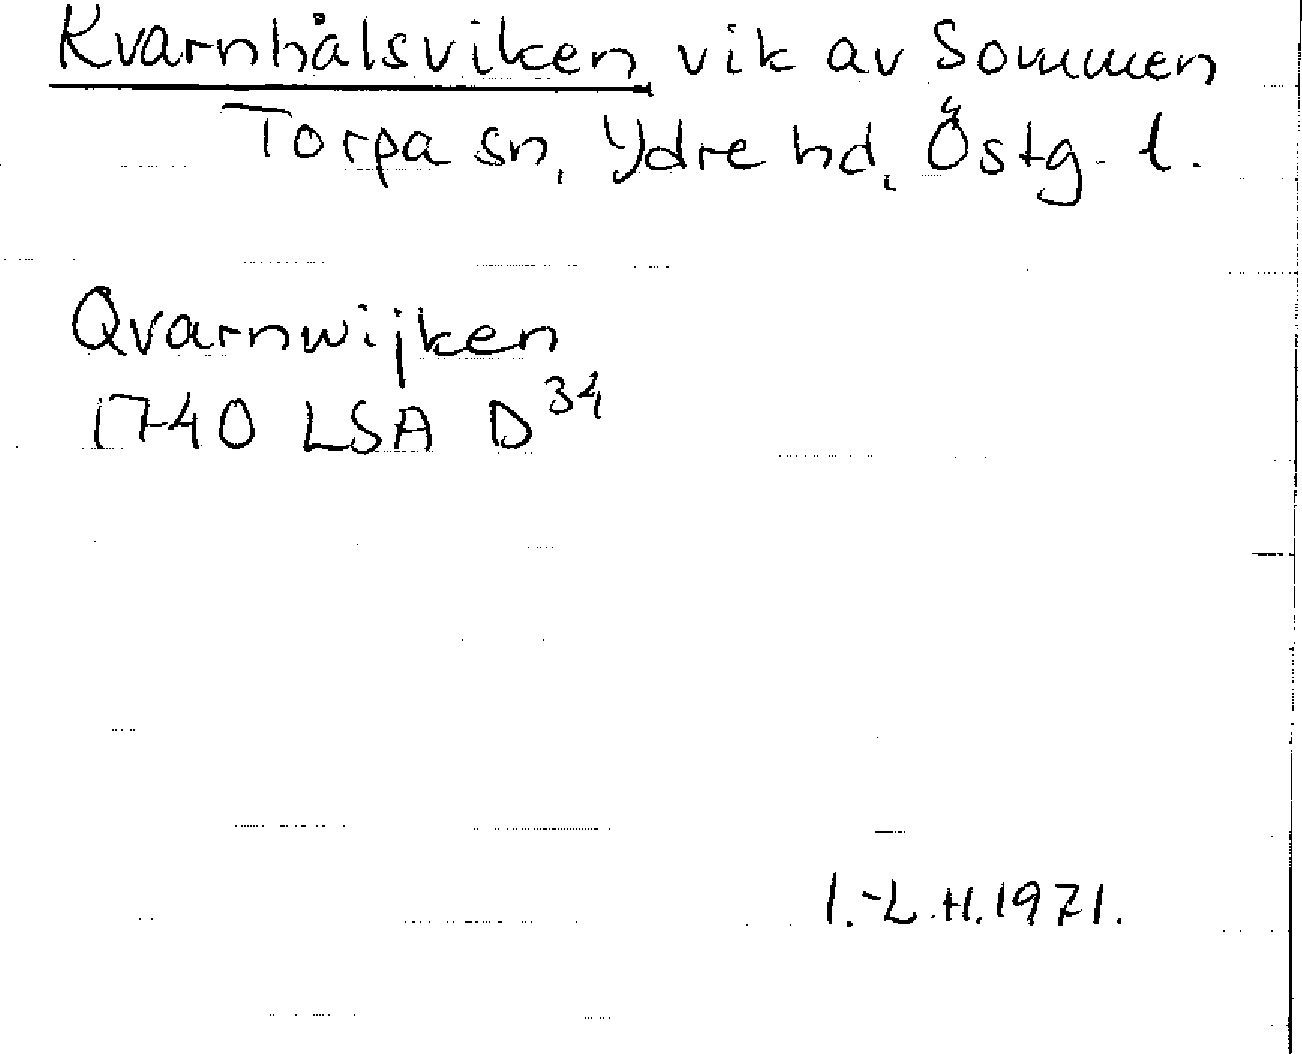 Kvarnhålsviken vik av Sommen
Torpa sn, Ydre hd, Östg. l.
Qvarnwijken
1740 LSA D 34
I.-L.H. 1971.